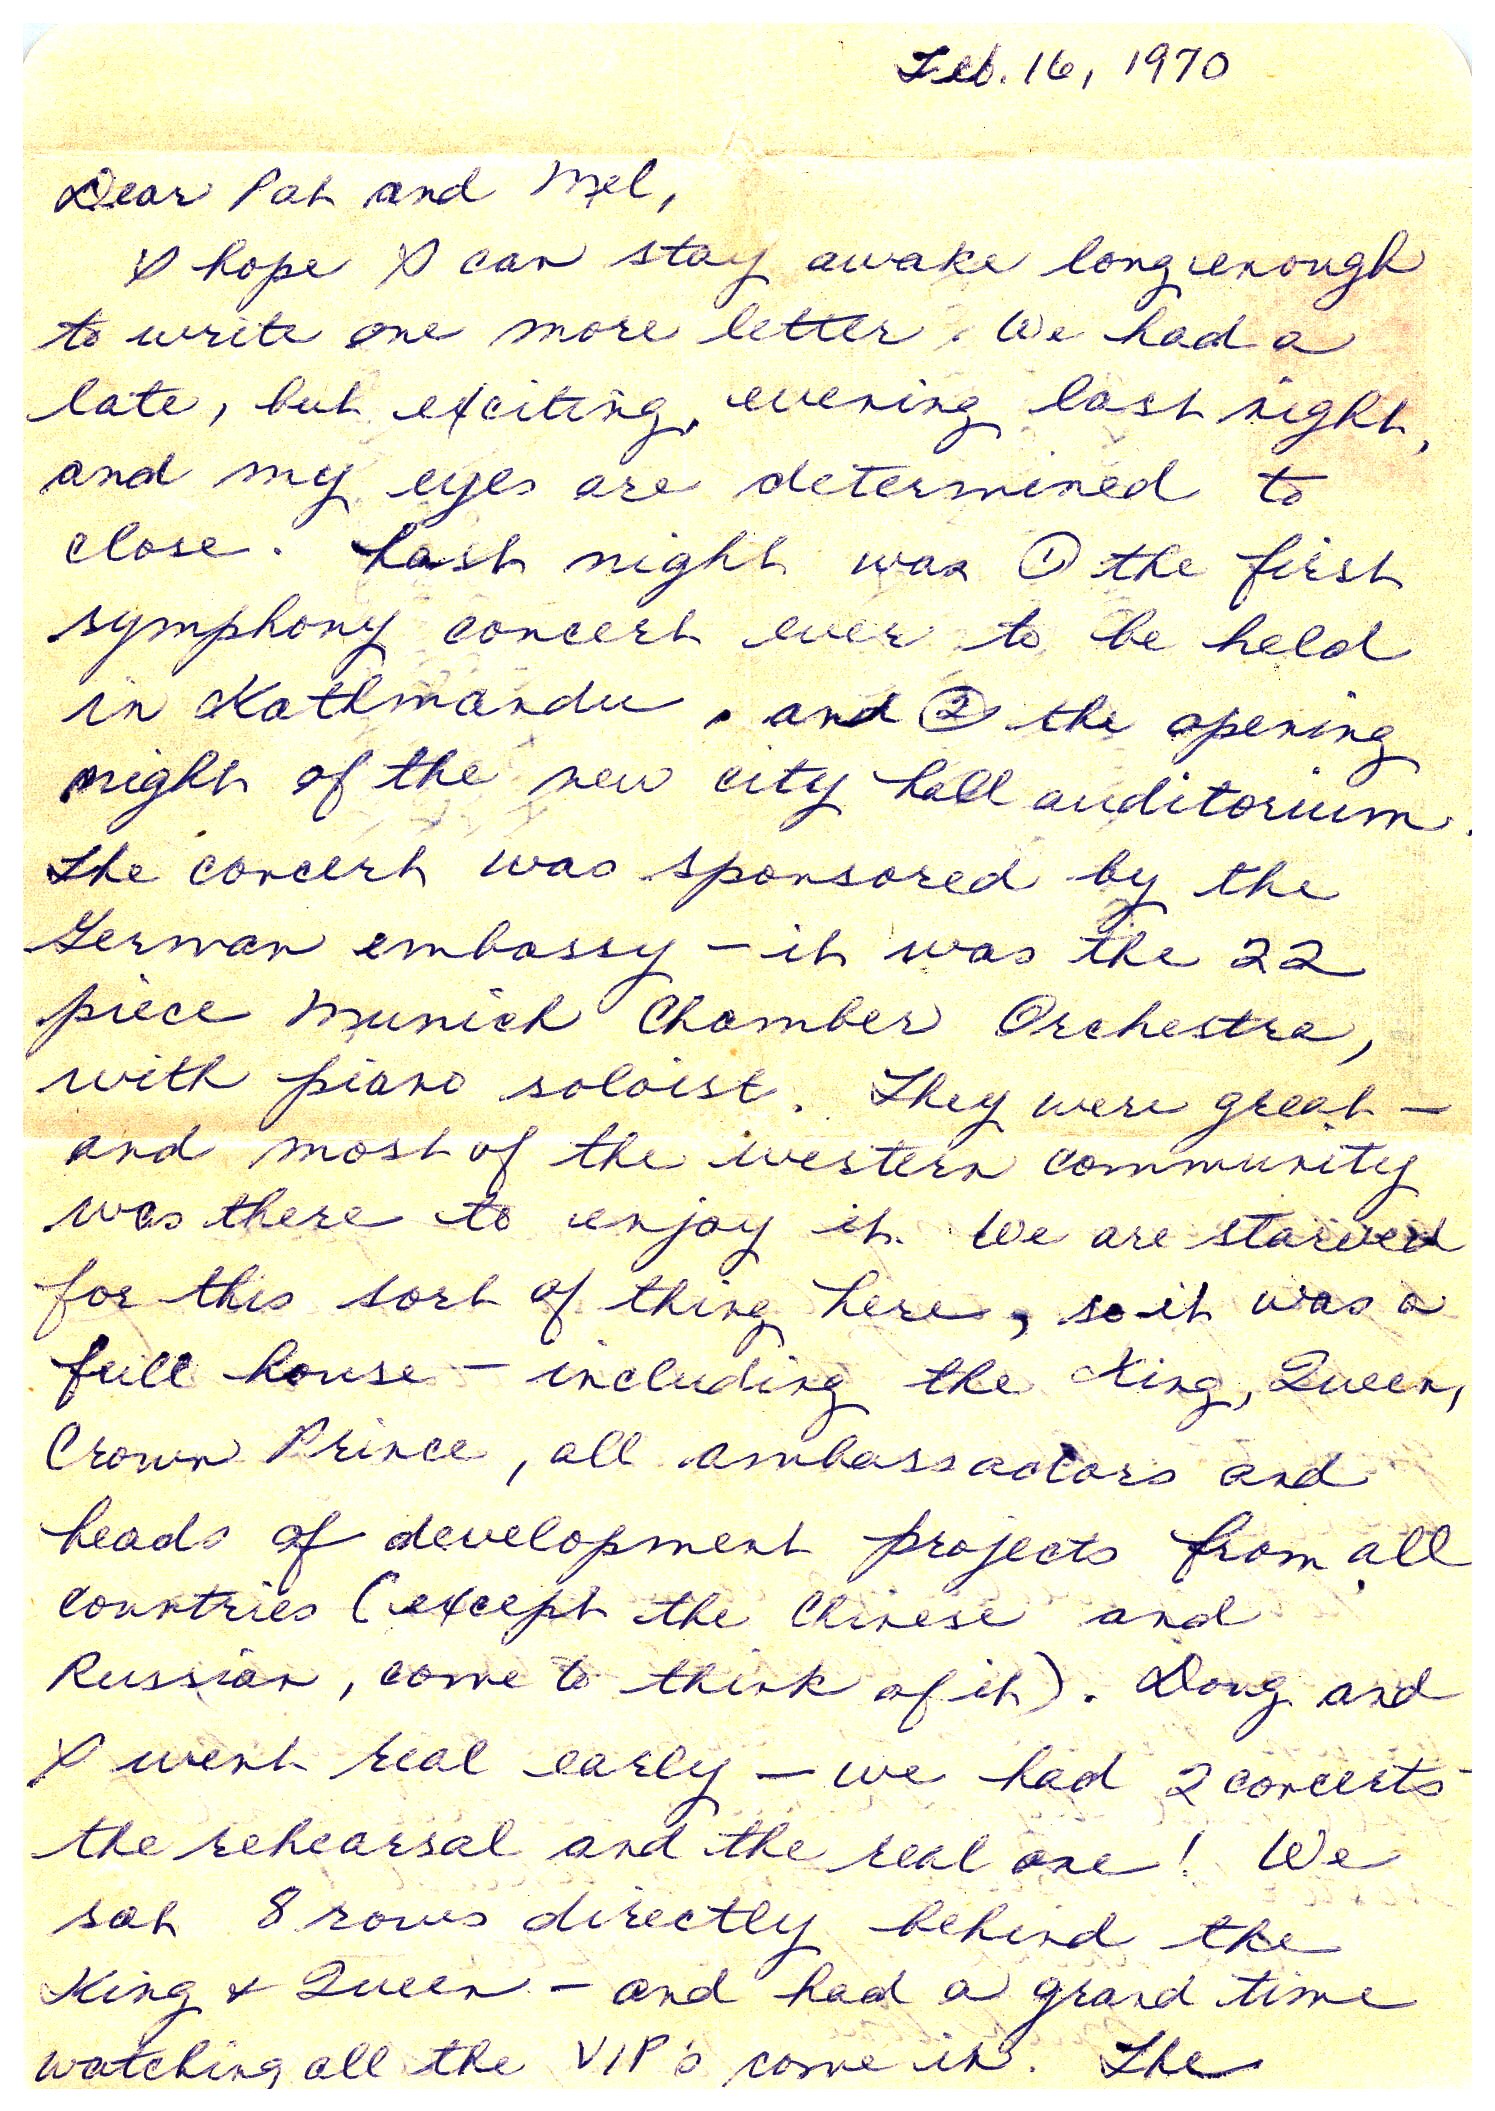 Feb. 16, 1970
Dear Pat and Mel,
I hope I can stay awake long enough
to write one more letter. We had a
late, but exciting, evening last night,
and my eyes are determined to
close. Last night was ① the first
symphony concert ever to be held
in Kathmandu, and ② the opening
night of the new city hall auditorium.
The concert was sponsored by the
German embassy – it was the 22
piece Munich Chamber Orchestra,
with piano soloist. They were great –
and most of the western community
was there to enjoy it. We are starved
for this sort of thing here, so it was a
full house – including the King, Queen,
Crown Prince, all ambassadors and
heads of development projects from all
countries (except the Chinese and
Russian, come to think of it). Doug and
I went real early – we had 2 concerts –
the rehearsal and the real one! We
sat 8 rows directly behind the
King & Queen – and had a grand time
watching all the VIP's come in. The